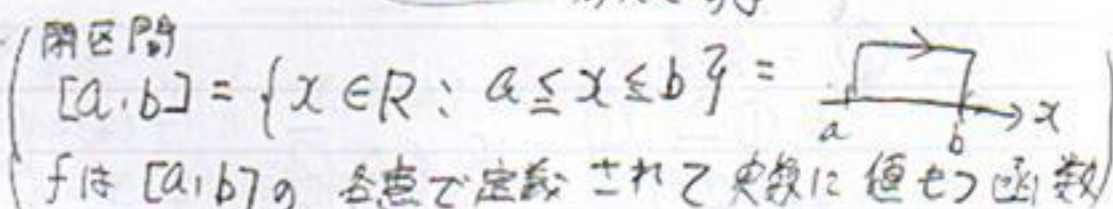 閉区間
[a,b] = {x ∈ R : a ≦ x ≦ b} =
a b x
fは [a,b]の 各点で定義 されて 実数に 値もつ 函数